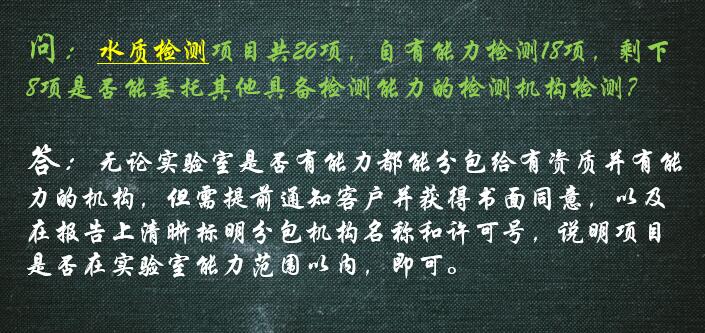 问：水质检测项目共26项，自有能力检测18项，剩下
8项是否能委托其他具备检测能力的检测机构检测？
答：无论实验室是否有能力都能分包给有资质并有能
力的机构，但需提前通知客户并获得书面同意，以及
在报告上清晰标明分包机构名称和许可号，说明项目
是否在实验室能力范围以内，即可。